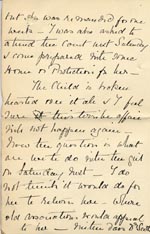 but she was remanded for one
week – I was also asked to
attend the Court next Saturday
& come prepared with some
Home or Protection for her –
The Child is broken
hearted over it all & I feel
sure this terrible affair
will not happen again –
Now the question is what
are we to do with the girl
on Saturday next – I do
not think it would do for
her to return here where
old associations would appeal
to her –